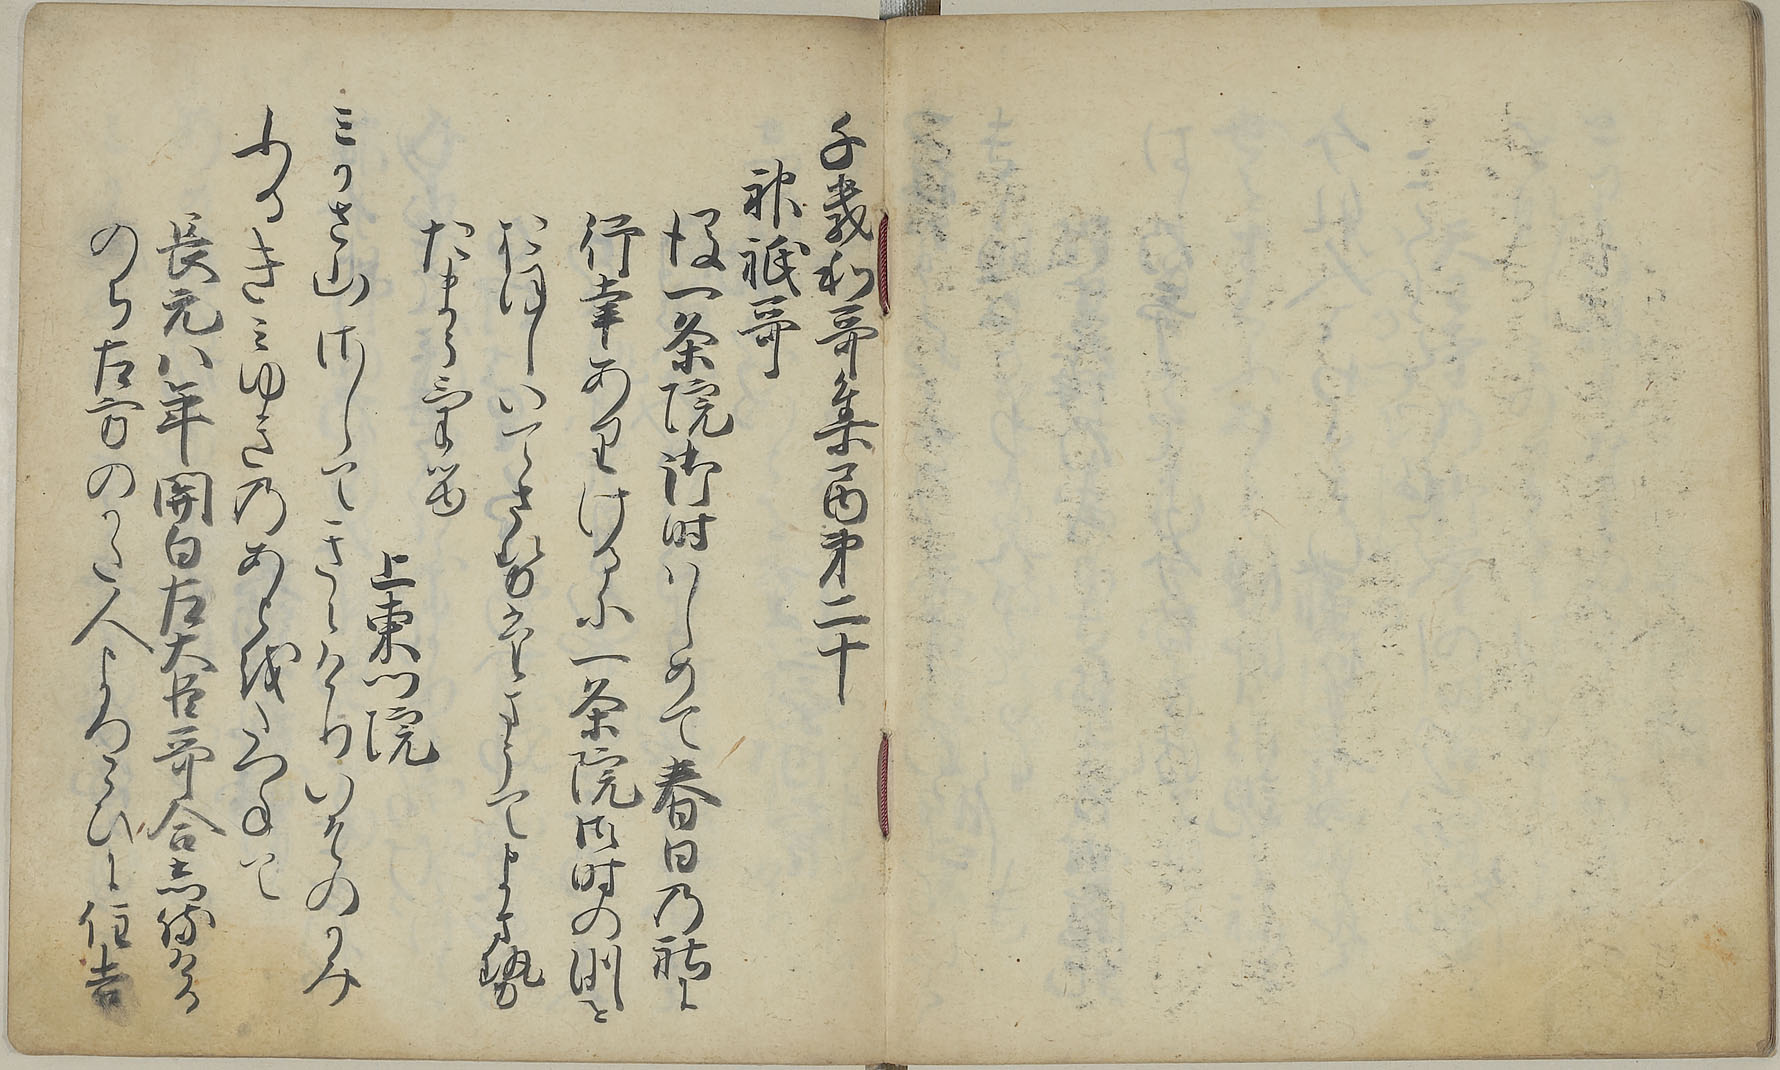 千載和哥集巻第二十
神祇哥
後一条院御時はしめて春日乃社に
行幸ありけるに一条院御時の例を
おほしいてさせたまうてよませ
たまうける
上東門院
三かさ山さしてきにけりいそのかみ
ふるきみゆきのあとをたつねて
長元八年関白左大臣哥合し侍ける
のち左方のかた人よろこひに住吉